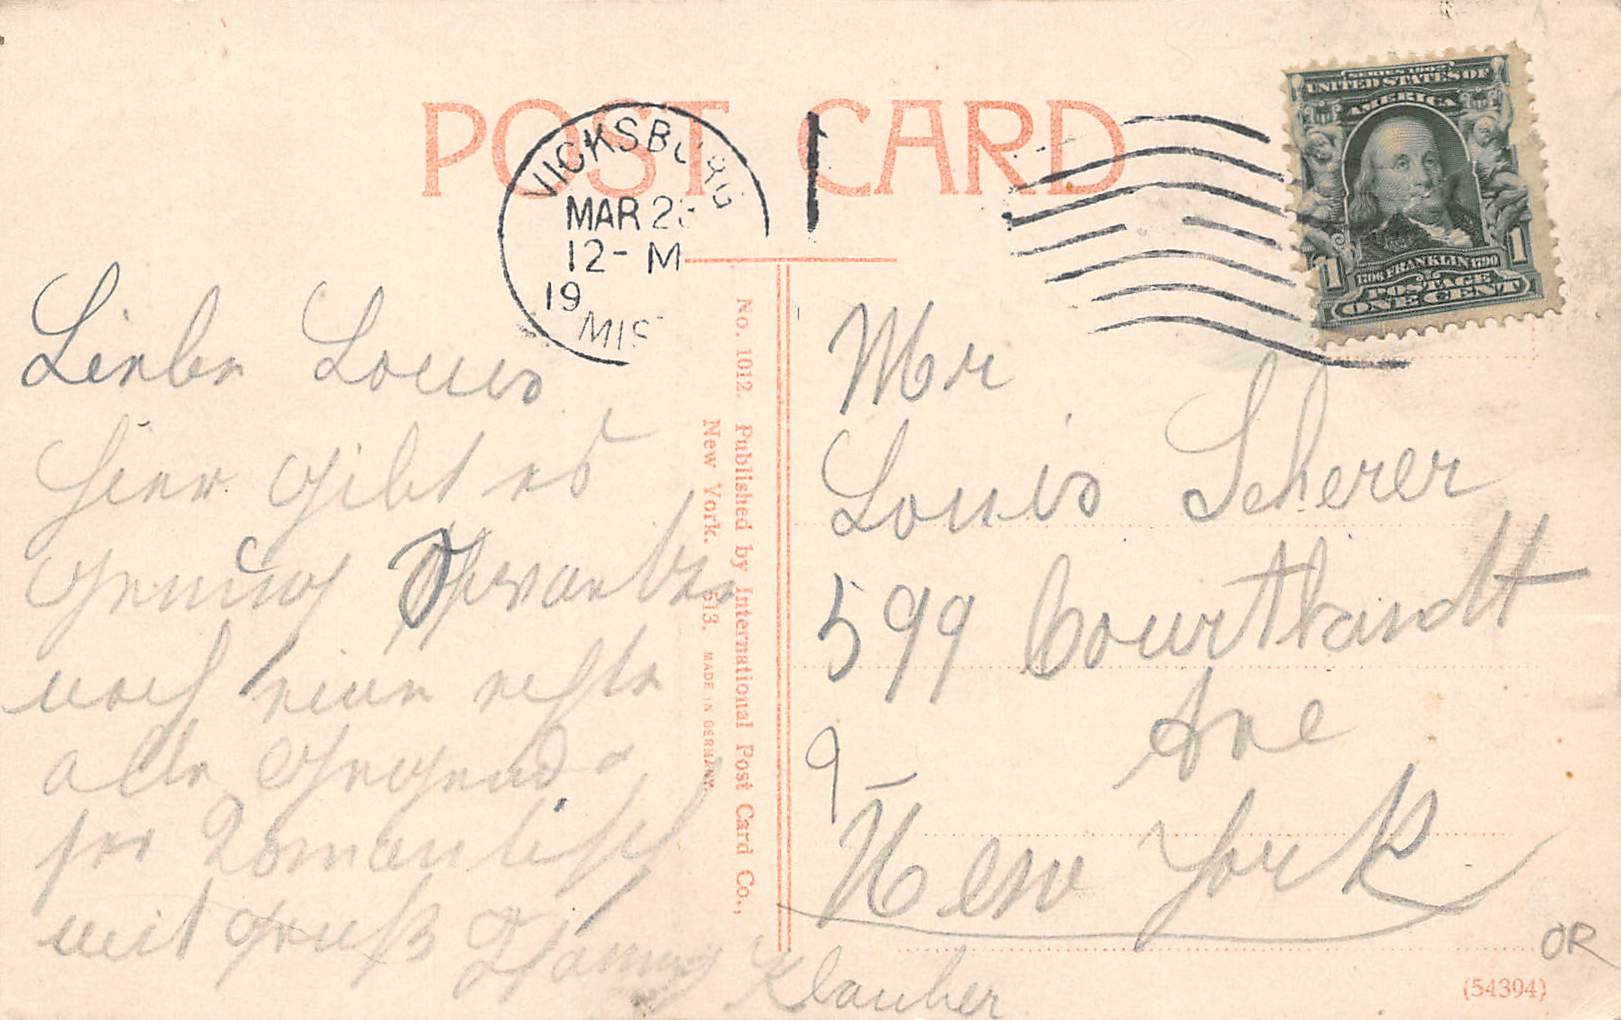 POST CARD
VICKSBURG
MAR 2
12- M
19
MIS
1
SERIES 1902
UNITED STATES OF
AMERICA
1706 FRANKLIN 1790
1 1
POSTAGE
ONE CENT
Liebe Louis
hier gibt es
genug Schwarze
noch eine rechte
alte Gegend
so Romantisch
mit Gruß
Klauber
No. 1012. Published by International Post Card Co.,
New York. 513. MADE IN GERMANY.
Mr
Louis Scherer
599 Courtlandt
Ave
New York
OR
(54394)